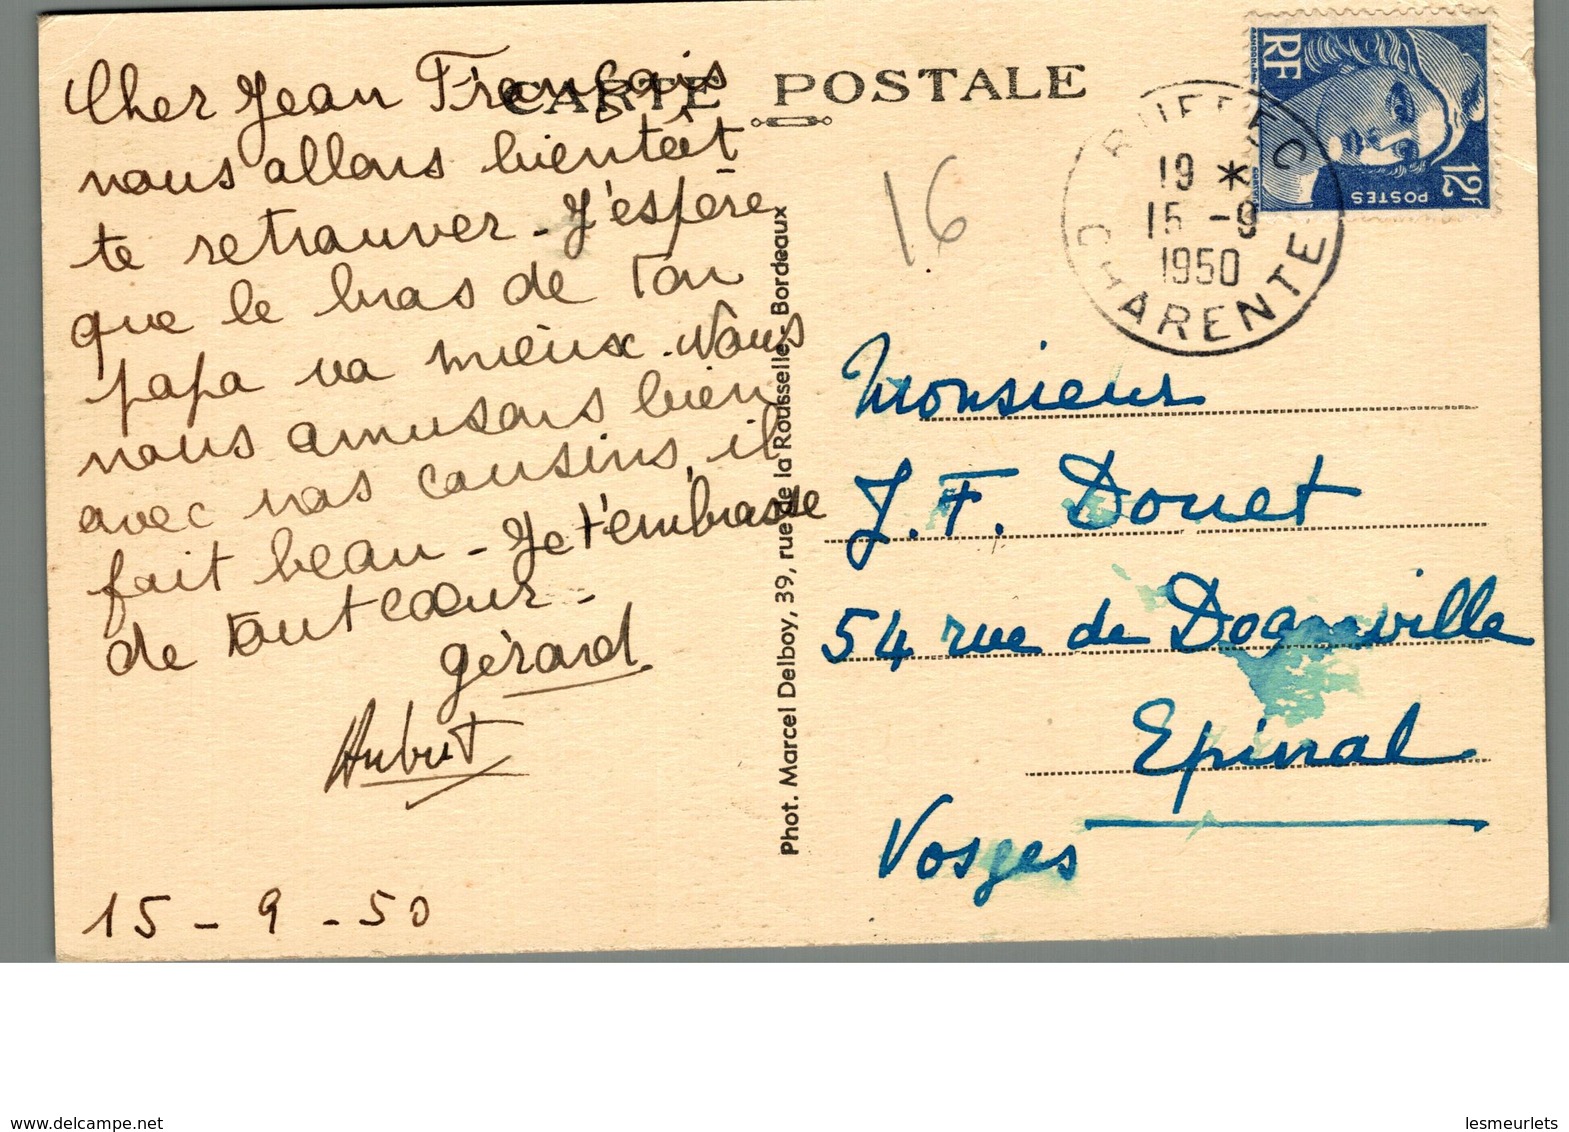 CARTE POSTALE
Cher Jean François
nous allons bientôt
te retrouver - J'espère
que le bras de ton
papa va mieux. Nous
nous amusons bien
avec nos cousins, il
fait beau - Je t'embrasse
de tout cœur -
Gérard
Hubert
15 - 9 - 50
Phot. Marcel Delboy, 39, rue de la Rousselle - Bordeaux
16
RUFFEC
19 *
15 - 9
1950
CHARENTE
RF
POSTES
12F
Monsieur
J. F. Douet
54 rue de Dogneville
Epinal
Vosges
www.delcampe.net
lesmeurlets